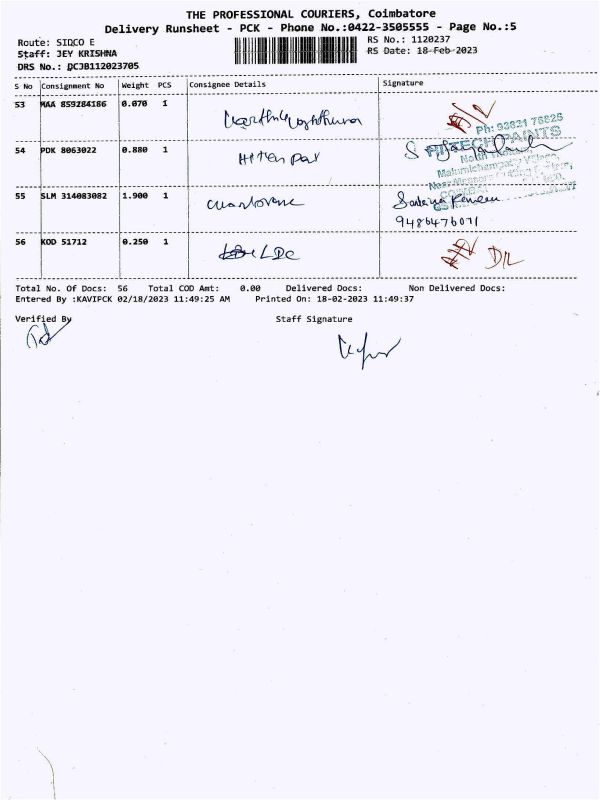 THE PROFESSIONAL COURIERS, Coimbatore
Delivery Runsheet - PCK - Phone No.:0422-3505555 - Page No.:5
Route: SIDCO E RS No.: 1120237
Staff: JEY KRISHNA RS Date: 18-Feb-2023
DRS No.: DCJB112023705
S No Consignment No Weight PCS Consignee Details Signature
53 MAA 859284186 0.070 1
Ph: 93821 76826
54 PDK 8063022 0.880 1
PAINTS
55 SLM 314083082 1.900 1
9486476071
56 KOD 51712 0.250 1 LDC D/L
Total No. Of Docs: 56 Total COD Amt: 0.00 Delivered Docs: Non Delivered Docs:
Entered By :KAVIPCK 02/18/2023 11:49:25 AM Printed On: 18-02-2023 11:49:37
Verified By Staff Signature